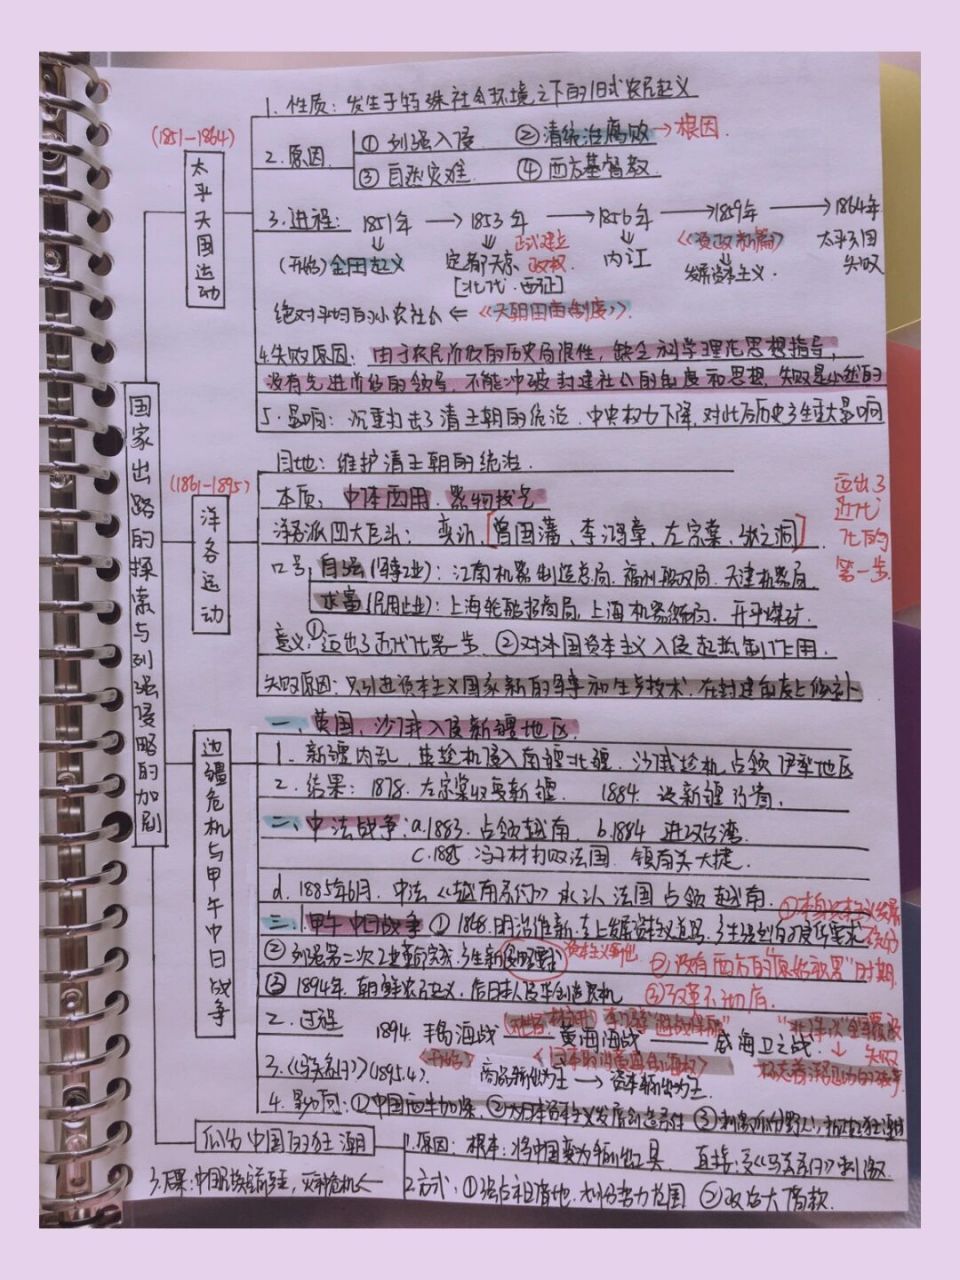 国家出路的探索与列强侵略的加剧
(1851-1864)
太平天国运动
1. 性质：发生于特殊社会环境之下的旧式农民起义
2. 原因
① 列强入侵 ② 清统治腐败→根因
③ 自然灾难 ④ 西方基督教
3. 进程： 1851年 → 1853年 → 1856年 → 1859年 → 1864年
(开始) 金田起义
定都天京 正式建立政权
[北伐·西征]
内讧
《资政新篇》
发展资本主义
太平天国失败
绝对平均的小农社会 ⇐ 《天朝田亩制度》
4.失败原因：由于农民阶级的历史局限性，缺乏科学理论思想指导，
没有先进阶级的领导 不能冲破封建社会的制度和思想，失败是必然的
5. 影响：沉重打击了清王朝的统治 中央权力下降，对此后历史产生重大影响
(1861-1895)
洋务运动
目地：维护清王朝的统治
本质： 中体西用 器物技艺
洋务派四大巨头： 奕䜣，[曾国藩，李鸿章，左宗棠，张之洞]
迈出了近代化的第一步
口号 自强(军事工业)：江南机器制造总局，福州船政局，天津机器局
求富(民用工业)：上海轮船招商局，上海机器织布局，开平煤矿
意义：①迈出了近代化第一步 ②对外国资本主义入侵起抵制作用.
失败原因：只引进资本主义国家新的军事和生产技术，在封建制度上修补
边疆危机与甲午中日战争
一、英国、沙俄入侵新疆地区
1. 新疆内乱，英趁机侵入南疆北疆，沙俄趁机占领伊犁地区
2. 结果： 1878. 左宗棠收复新疆. 1884. 设新疆行省.
二、中法战争：a.1883. 占领越南. b.1884 进攻台湾
c.1885 冯子材打败法国. 镇南关大捷.
d. 1885年6月. 中法《越南条约》承认法国占领越南
三、1.甲午中日战争 ① 1868.明治维新
② 列强第二次工业革命完成，
② 没有西方的"原始积累"时期
③ 1894年. 朝鲜农民起义，
③改革不彻底
2. 过程 1894. 丰岛海战 —— 黄海海战 —— 威海卫之战.
<开始>
失败
3.《马关条约》(1895.4). 商品输出为主 → 资本输出为主
4. 影响：①中国
瓜分中国的狂潮
1.原因：根本：将中国变为输出工具 直接：受《马关条约》刺激.
2.方式：①强占租借地，划分势力范围 ②政治大借款.
3.后果：中国